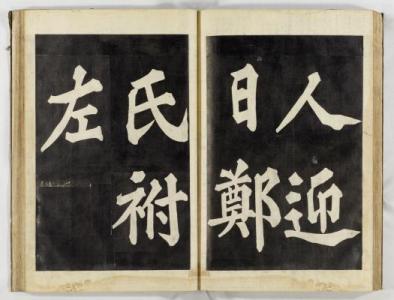 人迎
日鄭
氏祔
左